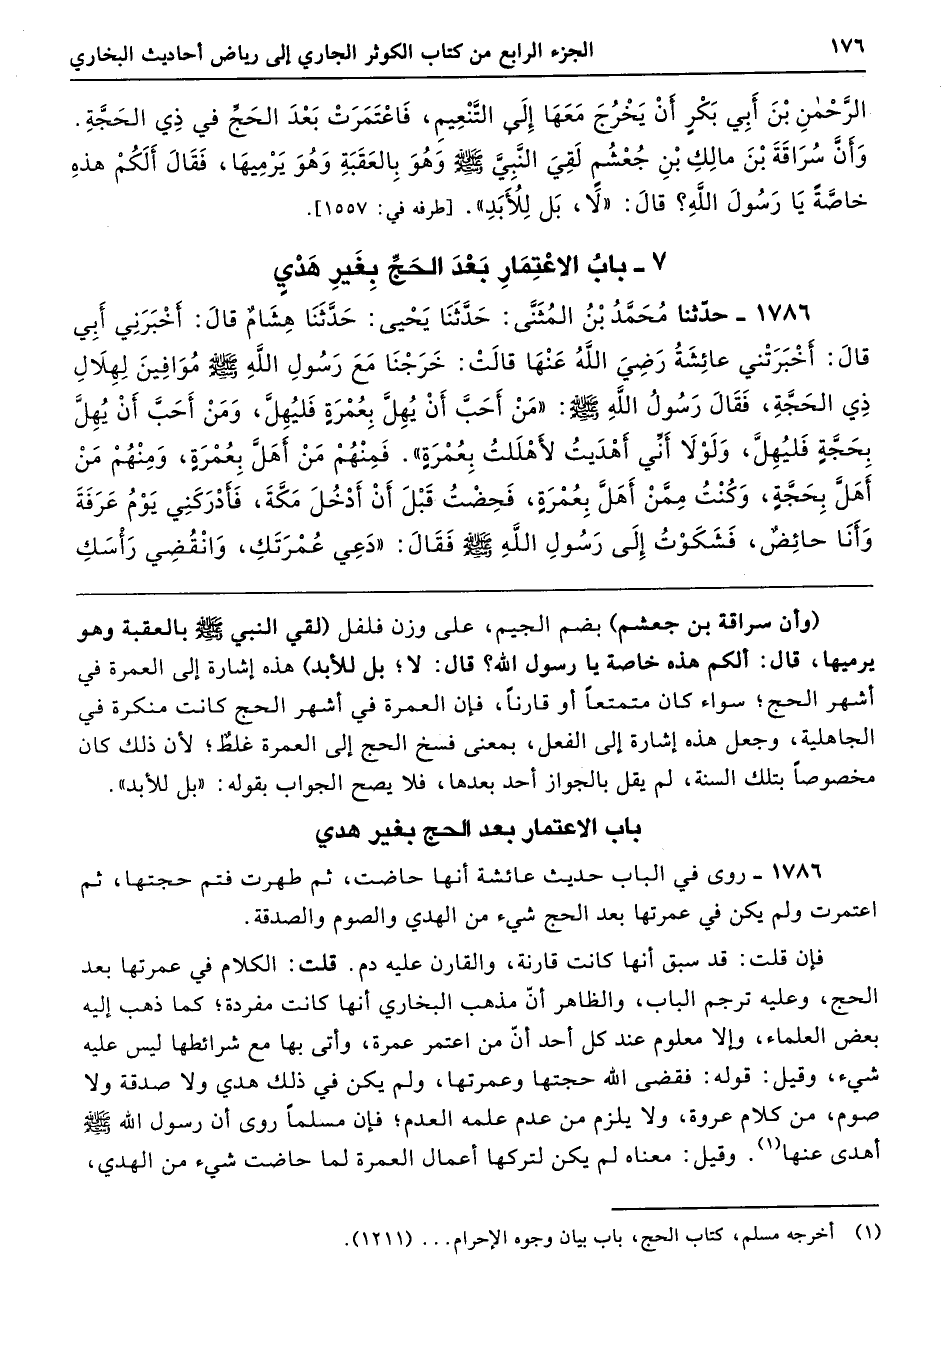 ١٧٦ الجزء الرابع من كتاب الكوثر الجاري إلى رياض أحاديث البخاري
الرَّحْمٰنِ بْنَ أَبِي بَكْرٍ أَنْ يَخْرُجَ مَعَهَا إِلَى التَّنْعِيمِ، فَاعْتَمَرَتْ بَعْدَ الحَجِّ في ذِي الحَجَّةِ.
وَأَنَّ سُرَاقَةَ بْنَ مالِكِ بْنِ جُعْشُمٍ لَقِيَ النَّبِيَّ ﷺ وَهُوَ بِالعَقَبَةِ وَهُوَ يَرْمِيهَا، فَقَالَ أَلَكُمْ هذهِ
خاصَّةً يَا رَسُولَ اللَّهِ؟ قالَ: «لَا، بَل لِلْأَبَدِ». [طرفه في: ١٥٥٧].
٧ ـ بابُ الاعْتِمَارِ بَعْدَ الحَجِّ بِغَيرِ هَدْيٍ
١٧٨٦ ـ حدّثنا مُحَمَّدُ بْنُ المُثَنَّى: حَدَّثَنَا يَحْيى: حَدَّثَنَا هِشَامٌ قالَ: أَخْبَرَنِي أَبِي
قالَ: أَخْبَرَتْنِي عائِشَةُ رَضِيَ اللَّهُ عَنْهَا قالَتْ: خَرَجْنَا مَعَ رَسُولِ اللَّهِ ﷺ مُوَافِينَ لِهِلَالِ
ذِي الحَجَّةِ، فَقَالَ رَسُولُ اللَّهِ ﷺ: «مَنْ أَحَبَّ أَنْ يُهِلَّ بِعُمْرَةٍ فَليُهِلَّ، وَمَنْ أَحَبَّ أَنْ يُهِلَّ
بِحَجَّةٍ فَليُهِلَّ، وَلَوْلَا أَنِّي أَهْدَيتُ لأَهْلَلتُ بِعُمْرَةٍ». فَمِنْهُمْ مَنْ أَهَلَّ بِعُمْرَةٍ، وَمِنْهُمْ مَنْ
أَهَلَّ بِحَجَّةٍ، وَكُنْتُ مِمَّنْ أَهَلَّ بِعُمْرَةٍ، فَحِضْتُ قَبْلَ أَنْ أَدْخُلَ مَكَّةَ، فَأَدْرَكَنِي يَوْمُ عَرَفَةَ
وَأَنَا حائِضٌ، فَشَكَوْتُ إِلَى رَسُولِ اللَّهِ ﷺ فَقَالَ: «دَعِي عُمْرَتَكِ، وَانْقُضِي رَأْسَكِ
(وأن سراقة بن جعشم) بضم الجيم، على وزن فلفل (لقي النبي ﷺ بالعقبة وهو
يرميها، قال: ألكم هذه خاصة يا رسول الله؟ قال: لا؛ بل للأبد) هذه إشارة إلى العمرة في
أشهر الحج؛ سواء كان متمتعاً أو قارناً، فإن العمرة في أشهر الحج كانت منكرة في
الجاهلية، وجعل هذه إشارة إلى الفعل، بمعنى فسخ الحج إلى العمرة غلطٌ؛ لأن ذلك كان
مخصوصاً بتلك السنة، لم يقل بالجواز أحد بعدها، فلا يصح الجواب بقوله: «بل للأبد».
باب الاعتمار بعد الحج بغير هدي
١٧٨٦ ـ روى في الباب حديث عائشة أنها حاضت، ثم طهرت فتم حجتها، ثم
اعتمرت ولم يكن في عمرتها بعد الحج شيء من الهدي والصوم والصدقة.
فإن قلت: قد سبق أنها كانت قارنة، والقارن عليه دم. قلت: الكلام في عمرتها بعد
الحج، وعليه ترجم الباب، والظاهر أنّ مذهب البخاري أنها كانت مفردة؛ كما ذهب إليه
بعض العلماء، وإلا معلوم عند كل أحد أنّ من اعتمر عمرة، وأتى بها مع شرائطها ليس عليه
شيء، وقيل: قوله: فقضى الله حجتها وعمرتها، ولم يكن في ذلك هدي ولا صدقة ولا
صوم، من كلام عروة، ولا يلزم من عدم علمه العدم؛ فإن مسلماً روى أن رسول الله ﷺ
أهدى عنها(١). وقيل: معناه لم يكن لتركها أعمال العمرة لما حاضت شيء من الهدي،
(١) أخرجه مسلم، كتاب الحج، باب بيان وجوه الإحرام... (١٢١١).